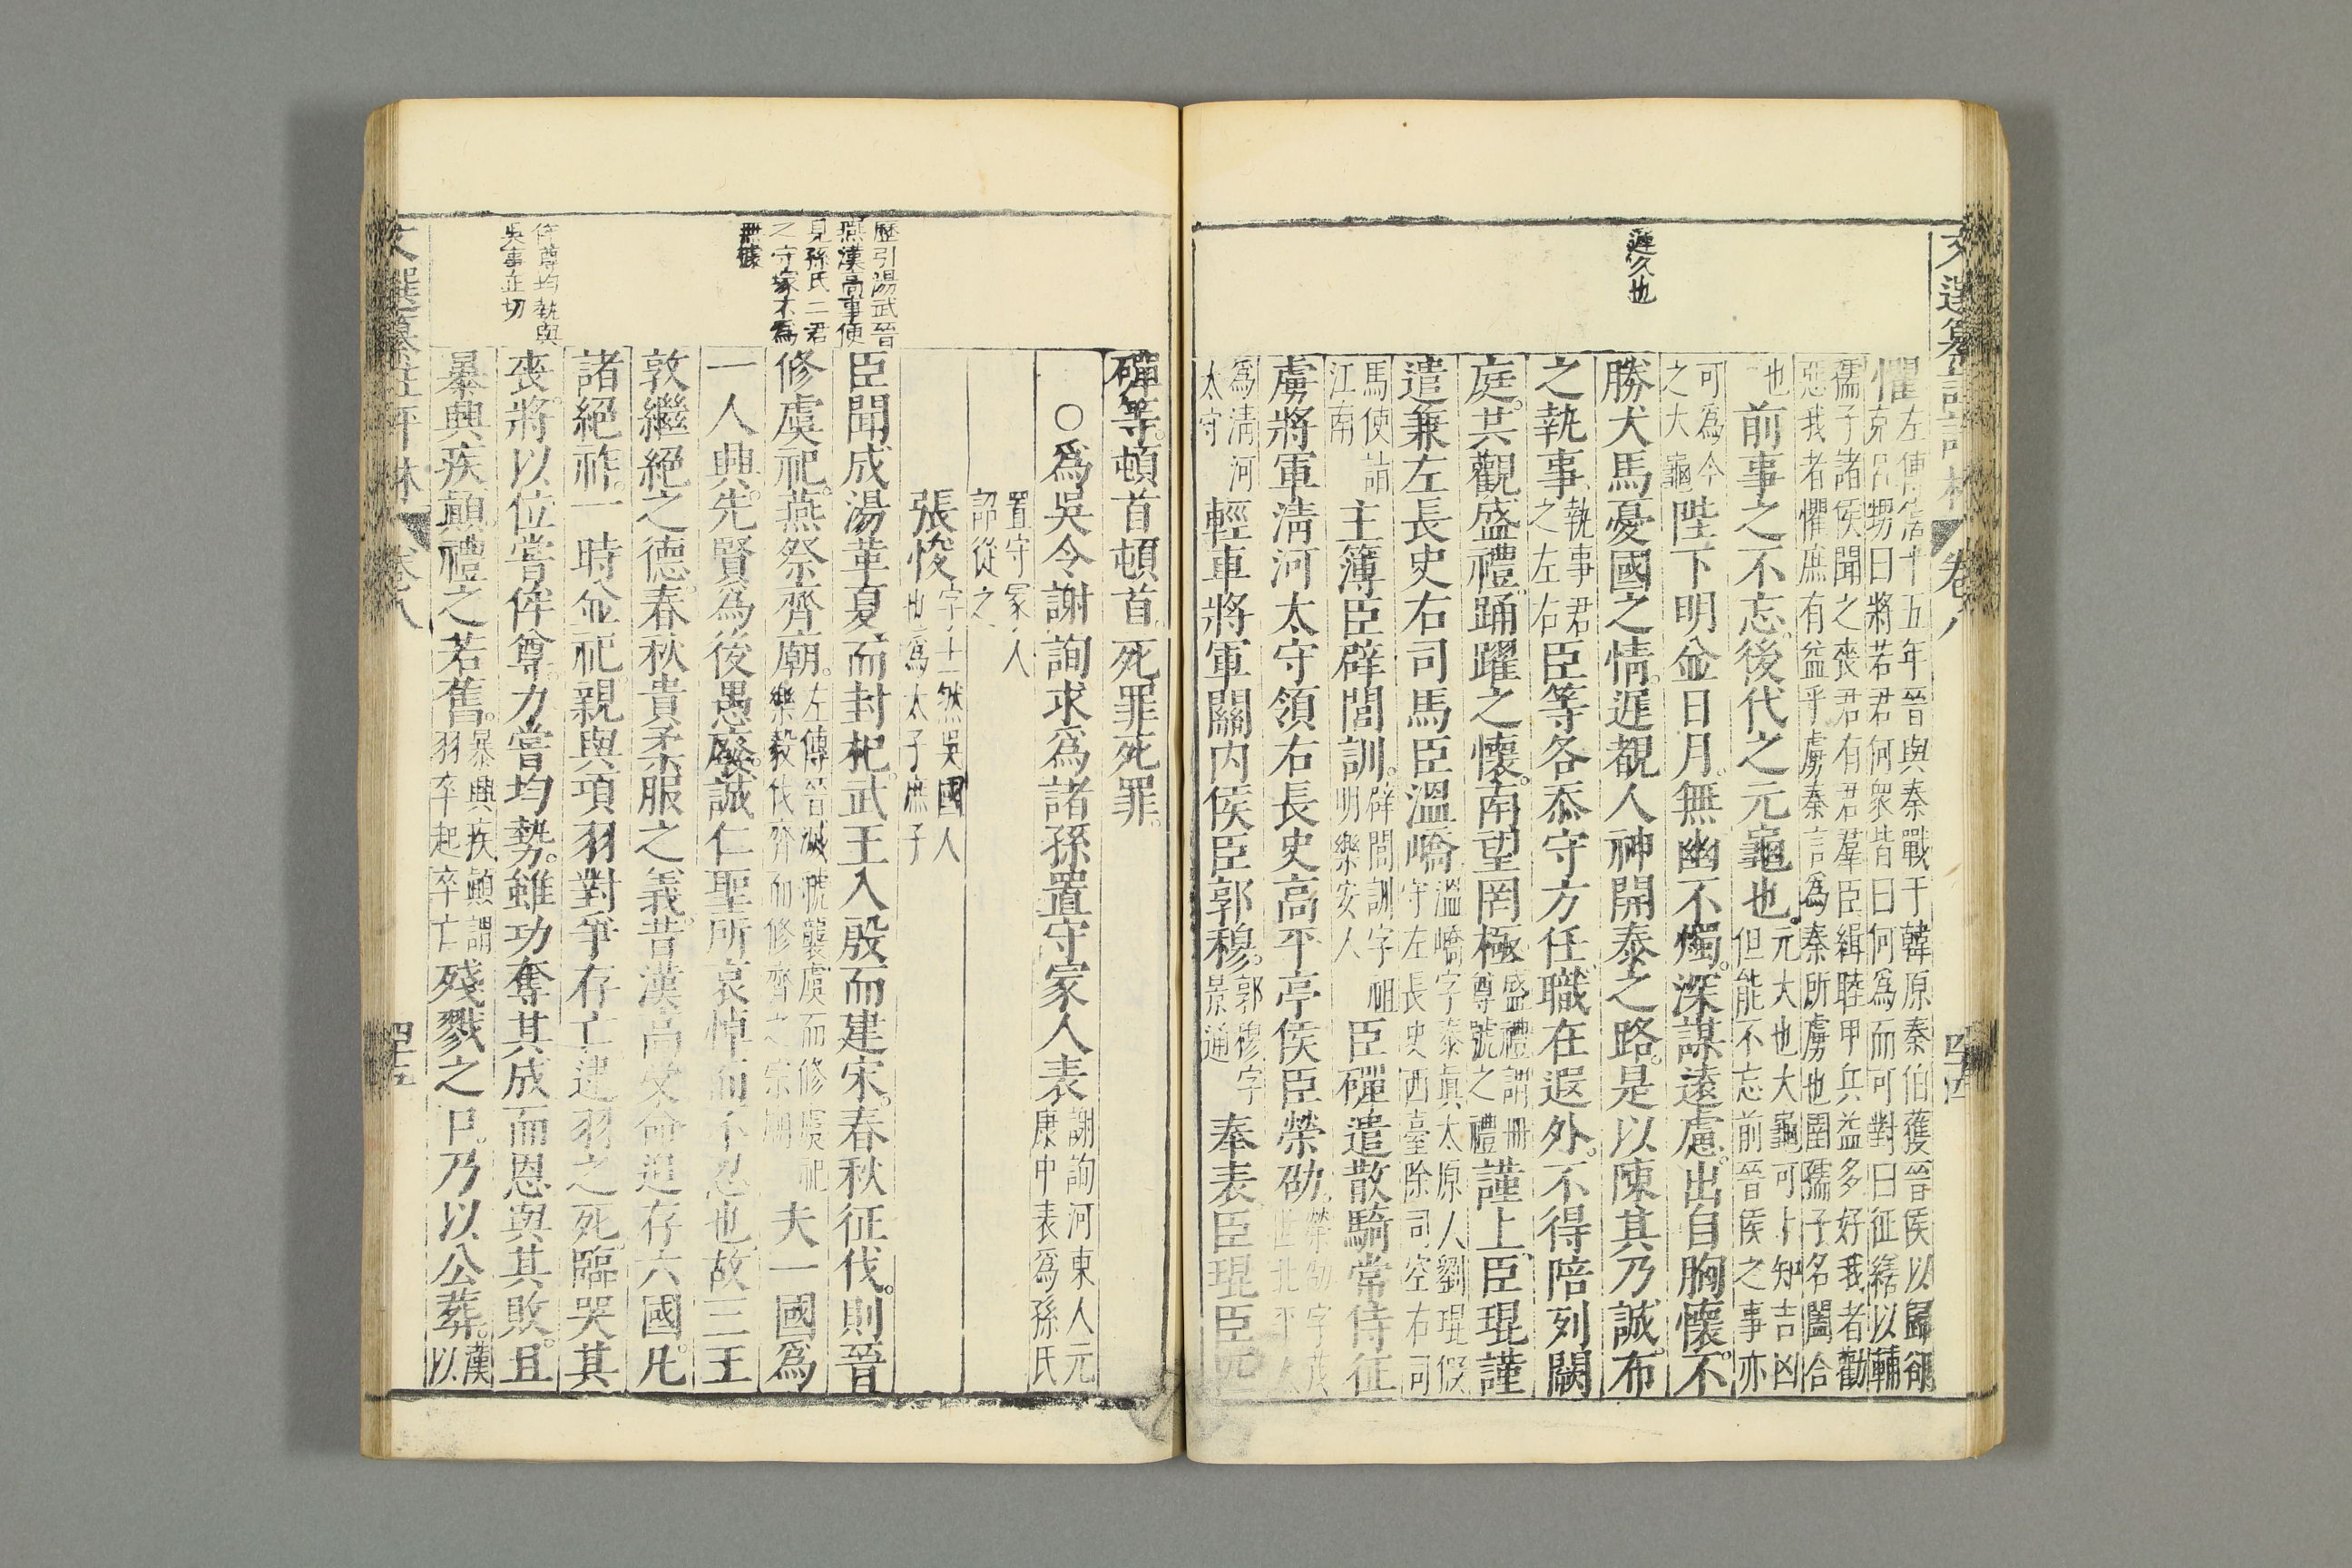 文選纂註評林 卷八 四十四
遲久也
懼左傳僖十五年晉與秦戰于韓原秦伯獲晉侯以歸郤
克呂甥曰將若君何衆皆曰何為而可對曰征繕以輔
孺子諸侯聞之喪君有君羣臣緝睦甲兵益多好我者勸
惡我者懼庶有益乎虜秦言爲秦所虜也圉孺子名闔合
也前事之不忘後代之元龜也元大也大龜可卜知吉凶
但能不忘前晉侯之事亦
可爲今
之大龜陛下明並日月無幽不燭深謀遠慮出自胸懷不
勝犬馬憂國之情遲覩人神開泰之路是以陳其乃誠布
之執事執事君
之左右臣等各忝守方任職在遐外不得陪列闕
庭共觀盛禮踊躍之懷南望罔極盛禮謂冊
尊號之禮謹上臣琨謹
遣兼左長史右司馬臣溫嶠溫嶠字泰眞太原人劉琨假
守左長史西臺除司空右司
馬使詣
江南主簿臣辟閭訓辟閭訓字祖
明樂安人臣磾遣散騎常侍征
虜將軍淸河太守領右長史高平亭侯臣榮劭榮劭字茂
世北平人
爲淸河
太守輕車將軍關內侯臣郭穆郭穆字
景通奉表臣琨臣匹
磾等頓首頓首死罪死罪
○爲吳令謝詢求爲諸孫置守冢人表謝詢河東人元
康中表爲孫氏
置守冢人
詔從之
張悛字士然吳國人
也爲太子庶子
歷引湯武晉
燕漢高事使
見孫氏二君
之守冢不爲
無據
臣聞成湯革夏而封杞武王入殷而建宋春秋征伐則晉
修虞祀燕祭齊廟左傳晉滅虢襲虞而修虞祀
樂毅伐齊而修齊之宗廟夫一國爲
一人興先賢爲後愚廢誠仁聖所哀悼而不忍也故三王
敦繼絕之德春秋貴柔服之義昔漢高受命追存六國凡
諸絕祚一時並祀親與項羽對爭存亡逮羽之死臨哭其
侔尊均執與
吳事正切
喪將以位嘗侔尊力嘗均勢雖功奪其成而恩與其敗且
暴興疾顚禮之若舊暴興疾顚謂
羽卒起卒亡殘戮之尸乃以公葬漢
以
文選纂註評林 卷八 四十五